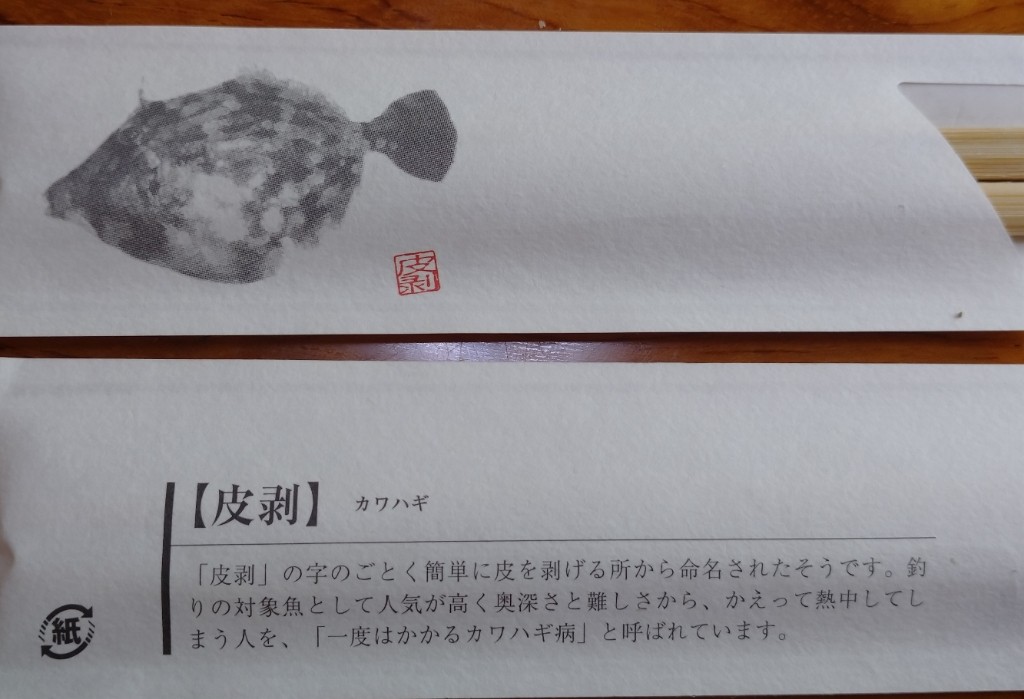 皮
剥
【皮剥】 カワハギ
「皮剥」の字のごとく簡単に皮を剥げる所から命名されたそうです。釣
りの対象魚として人気が高く奥深さと難しさから、かえって熱中してし
まう人を、「一度はかかるカワハギ病」と呼ばれています。
紙